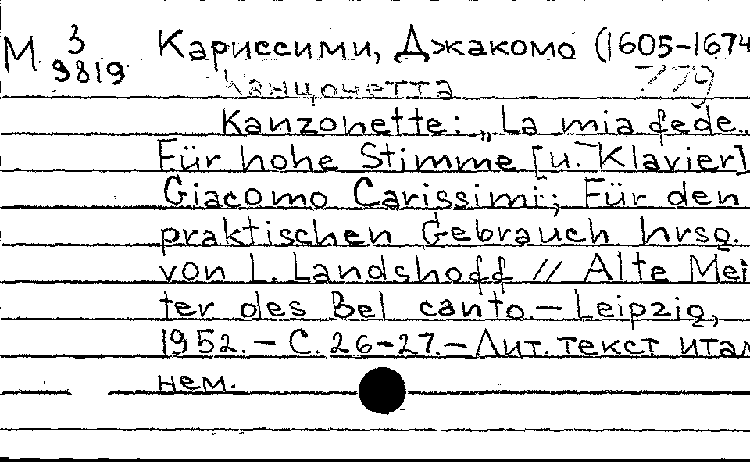 М 3 Кариссими, Джакомо (1605-1674
9819
Канцонетта 779
Kanzonette: „La mia fede..
Für hohe Stimme [u. Klavier]
Giacomo Carissimi; Für den
praktischen Gebrauch hrsg.
von L. Landshoff // Alte Mei
ter des Bel canto.— Leipzig,
1952.— С. 26-27.— Лит. текст итал
нем.